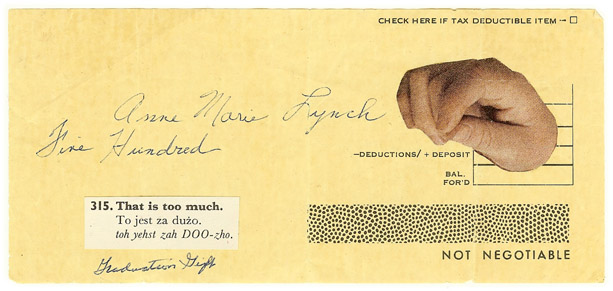 CHECK HERE IF TAX DEDUCTIBLE ITEM → □
Anne Marie Lynch
Five Hundred
-DEDUCTIONS/ + DEPOSIT
BAL.
FOR'D
315. That is too much.
To jest za dużo.
toh yehst zah DOO-zho.
NOT NEGOTIABLE
Graduation Gift